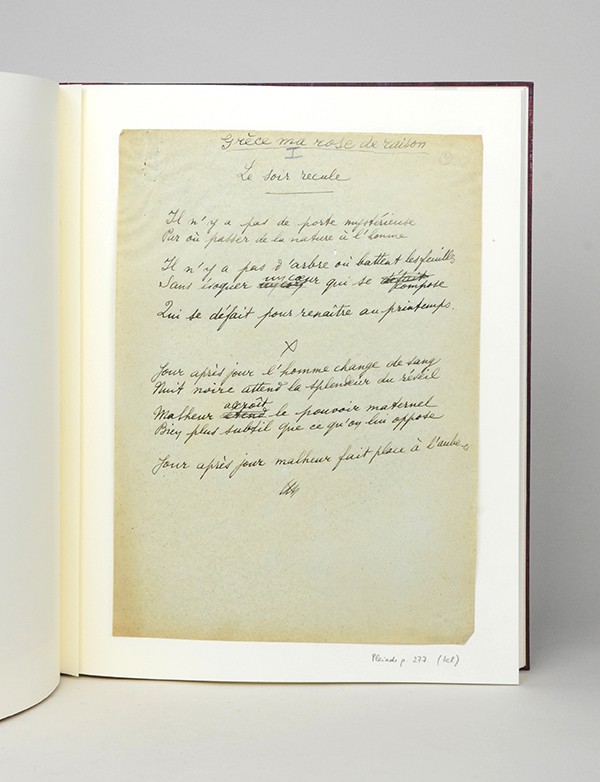 Grèce ma rose de raison
I
Le soir recule
Il n'y a pas de porte mystérieuse
Par où passer de la nature à l'homme
Il n'y a pas d'arbre où battent les feuilles
Sans évoquer un cœur qui se détruit compose
Qui se défait pour renaître au printemps.
X
Jour après jour l'homme change de sang
Nuit noire attend la splendeur du réveil
accroît
Malheur attend le pouvoir maternel
Bien plus subtil que ce qu'on lui oppose
Jour après jour malheur fait place à l'aube
Pleiade p. 277